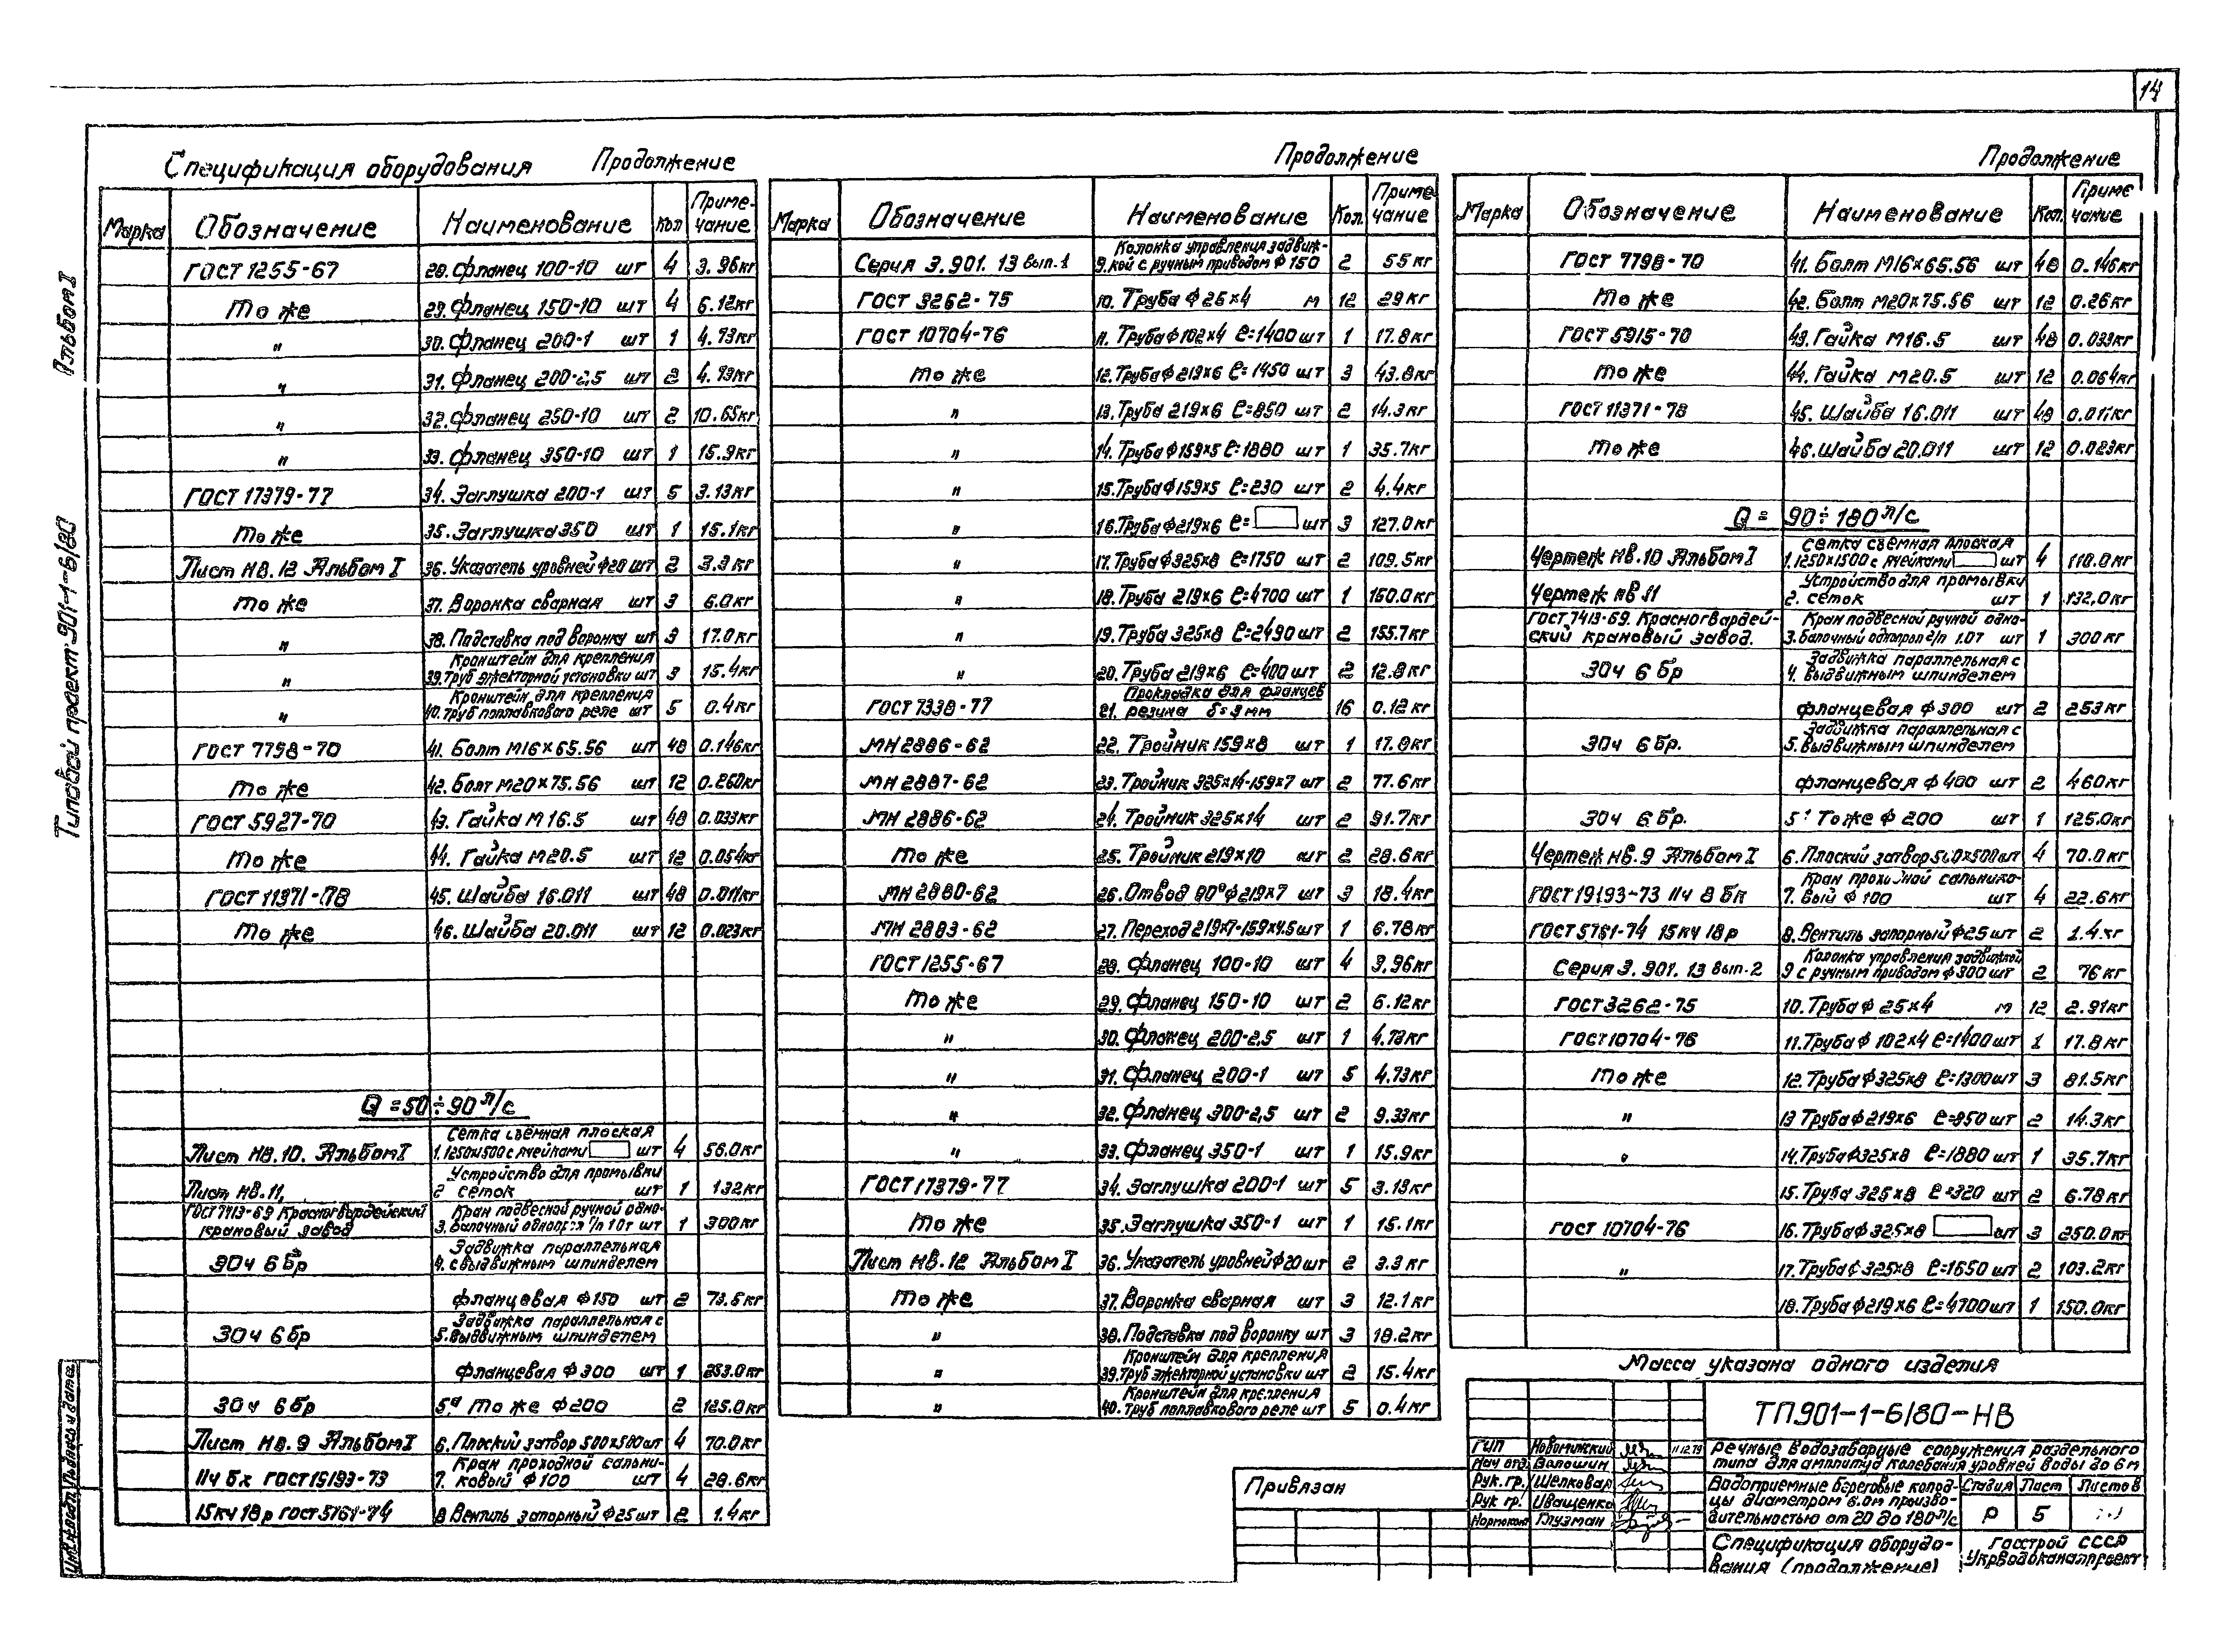 14
Альбом I
Типовой проект 901-1-6/80
Спецификация оборудования Продолжение
Марка Обозначение Наименование Кол Приме-чание
ГОСТ 1255-67 28. Фланец 100-10 шт 4 3.96кг
То же 29. Фланец 150-10 шт 4 6.12кг
" 30. Фланец 200-1 шт 1 4.73кг
" 31. Фланец 200-2,5 шт 2 4.73кг
" 32. Фланец 250-10 шт 2 10.65кг
" 33. Фланец 350-10 шт 1 15.9кг
ГОСТ 17379-77 34. Заглушка 200-1 шт 5 3.13кг
То же 35. Заглушка 350 шт 1 15.1кг
Лист НВ.12 Альбом I 36. Указатель уровней ф20 шт 2 3.3кг
То же 37. Воронка сварная шт 3 6.0кг
" 38. Подставка под воронку шт 3 17.0кг
" Кронштейн для крепления
39. труб эжекторной установки шт 3 15.4кг
" Кронштейн для крепления
40. труб поплавкового реле шт 5 0.4кг
ГОСТ 7798-70 41. Болт М16×65.56 шт 48 0.146кг
То же 42. Болт М20×75.56 шт 12 0.260кг
ГОСТ 5927-70 43. Гайка М16.5 шт 48 0.033кг
То же 44. Гайка М20.5 шт 12 0.054кг
ГОСТ 11371-78 45. Шайба 16.011 шт 48 0.011кг
То же 46. Шайба 20.011 шт 12 0.023кг
Q = 50 ÷ 90 л/с
Лист НВ.10. Альбом I Сетка съемная плоская
1. 1250×1500 с ячейками шт 4 56.0кг
Лист НВ.11, Устройство для промывки
2 сеток шт 1 132кг
ГОСТ 7413-69 Красногвардейский крановый завод Кран подвесной ручной одно-
3. балочный однопрол г/п 1.0т шт 1 300кг
30ч 6бр Задвижка параллельная
4. с выдвижным шпинделем
фланцевая ф150 шт 2 73.5кг
30ч 6бр Задвижка параллельная с
5. выдвижным шпинделем
фланцевая ф300 шт 1 253.0кг
30ч 6бр 5а То же ф200 2 125.0кг
Лист НВ.9 Альбом I 6. Плоский затвор 500×500 шт 4 70.0кг
11ч 6к ГОСТ 19193-73 Кран проходной сальни-
7. ковый ф100 шт 4 28.6кг
15кч 18р ГОСТ 5761-74 8 Вентиль запорный ф25 шт 2 1.4кг
Продолжение
Марка Обозначение Наименование Кол. Приме-чание
Серия 3.901.13 вып.1 Колонка управления задвиж-
9. кой с ручным приводом ф150 2 55кг
ГОСТ 3262-75 10. Труба ф25×4 м 12 29кг
ГОСТ 10704-76 11. Труба ф102×4 ℓ=1400 шт 1 17.8кг
То же 12. Труба ф219×6 ℓ=1450 шт 3 43.8кг
" 13. Труба 219×6 ℓ=850 шт 2 14.3кг
" 14. Труба ф159×5 ℓ=1880 шт 1 35.7кг
" 15. Труба ф159×5 ℓ=230 шт 2 4.4кг
" 16. Труба ф219×6 ℓ= шт 3 127.0кг
" 17. Труба ф325×8 ℓ=1750 шт 2 109.5кг
" 18. Труба 219×6 ℓ=4700 шт 1 150.0кг
" 19. Труба 325×8 ℓ=2490 шт 2 155.7кг
" 20. Труба 219×6 ℓ=400 шт 2 12.8кг
ГОСТ 7338-77 Прокладка для фланцев
21. резина δ=3мм 16 0.12кг
МН 2886-62 22. Тройник 159×8 шт 1 17.8кг
МН 2887-62 23. Тройник 325×14-159×7 шт 2 77.6кг
МН 2886-62 24. Тройник 325×14 шт 2 91.7кг
То же 25. Тройник 219×10 шт 2 28.6кг
МН 2880-62 26. Отвод 90° ф219×7 шт 3 18.4кг
МН 2883-62 27. Переход 219×7-159×4.5 шт 1 6.78кг
ГОСТ 1255-67 28. Фланец 100-10 шт 4 3.96кг
То же 29. Фланец 150-10 шт 2 6.12кг
" 30. Фланец 200-2,5 шт 1 4.73кг
" 31. Фланец 200-1 шт 5 4.73кг
" 32. Фланец 300-2,5 шт 2 9.33кг
" 33. Фланец 350-1 шт 1 15.9кг
ГОСТ 17379-77 34. Заглушка 200-1 шт 5 3.13кг
То же 35. Заглушка 350-1 шт 1 15.1кг
Лист НВ.12 Альбом I 36. Указатель уровней ф20 шт 2 3.3кг
То же 37. Воронка сварная шт 3 12.1кг
" 38. Подставка под воронку шт 3 18.2кг
" Кронштейн для крепления
39. труб эжекторной установки шт 2 15.4кг
" Кронштейн для крепления
40. труб поплавкового реле шт 5 0.4кг
Продолжение
Марка Обозначение Наименование Кол. Приме чание
ГОСТ 7798-70 41. Болт М16×65.56 шт 48 0.146кг
То же 42. Болт М20×75.56 шт 12 0.26кг
ГОСТ 5915-70 43. Гайка М16.5 шт 48 0.033кг
То же 44. Гайка М20.5 шт 12 0.064кг
ГОСТ 11371-78 45. Шайба 16.011 шт 48 0.011кг
То же 46. Шайба 20.011 шт 12 0.023кг
Q = 90 ÷ 180 л/с
Чертеж НВ.10 Альбом I Сетка съемная плоская
1. 1250×1500 с ячейками шт 4 110.0кг
Чертеж НВ 11 Устройство для промывки
2. сеток шт 1 132,0кг
ГОСТ 7413-69. Красногвардей-ский крановый завод. Кран подвесной ручной одно-
3. балочный однопрол г/п 1.0т шт 1 300кг
30ч 6бр Задвижка параллельная с
4. выдвижным шпинделем
фланцевая ф300 шт 2 253кг
30ч 6бр. Задвижка параллельная с
5. выдвижным шпинделем
фланцевая ф400 шт 2 460кг
30ч 6бр. 5' То же ф200 шт 1 125.0кг
Чертеж НВ.9 Альбом I 6. Плоский затвор 500×500 шт 4 70.0кг
ГОСТ 19193-73 11ч 8бк Кран проходной сальнико-
7. вый ф100 шт 4 22.6кг
ГОСТ 5761-74 15кч 18р 8. Вентиль запорный ф25 шт 2 1.4кг
Серия 3.901.13 вып.2 Колонка управления задвижкой
9 с ручным приводом ф300 шт 2 76кг
ГОСТ 3262-75 10. Труба ф25×4 м 12 2.91кг
ГОСТ 10704-76 11. Труба ф102×4 ℓ=1400 шт 1 17.8кг
То же 12. Труба ф325×8 ℓ=1300 шт 3 81.5кг
" 13 Труба ф219×6 ℓ=850 шт 2 14.3кг
" 14. Труба ф325×8 ℓ=1880 шт 1 35.7кг
15. Труба 325×8 ℓ=320 шт 2 6.78кг
ГОСТ 10704-76 16. Труба ф325×8 шт 3 250.0кг
" 17. Труба ф325×8 ℓ=1650 шт 2 103.2кг
18. Труба ф219×6 ℓ=4700 шт 1 150.0кг
Масса указана одного изделия
ТП901-1-6/80-НВ
ГИП Новоминский 11.12.79
Нач отд. Валошин
Рук. гр. Шелковая
Рук гр. Иващенко
Нормокон Глузман
Речные водозаборные сооружения раздельного
типа для амплитуд колебания уровней воды до 6м
Водоприемные береговые колод-
цы диаметром 6.0м произво-
дительностью от 20 до 180л/с
Стадия Лист Листов
Р 5
Спецификация оборудо-
вания (продолжение)
Госстрой СССР
Укрводоканалпроект
Привязан
Инв.№подл. Подпись и дата